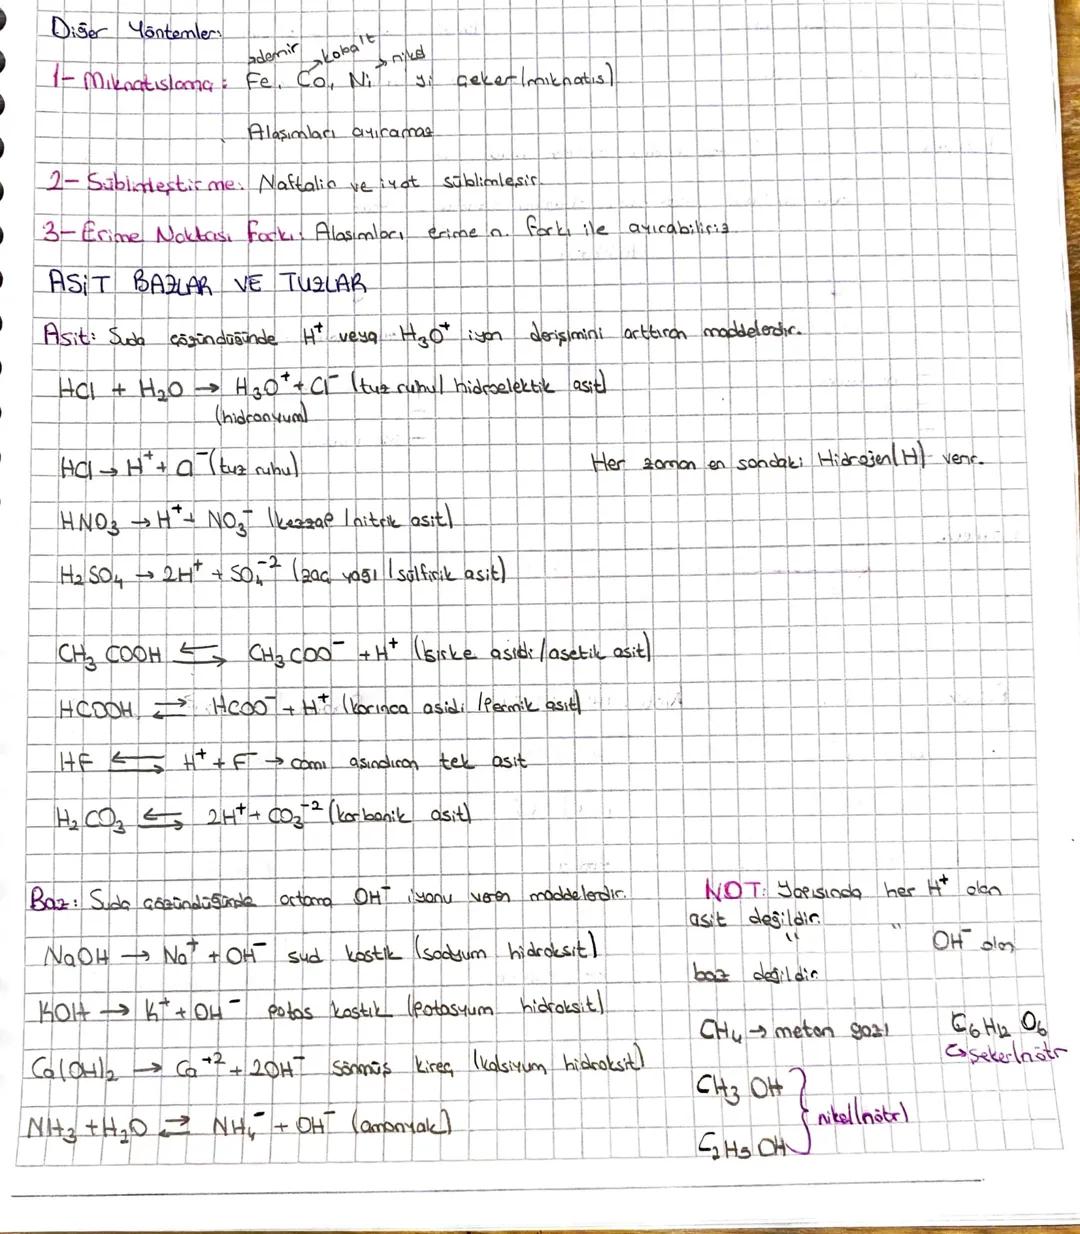 Diğer Yöntemler:
→demir →kobalt →nikel
1- Mıknatıslama: Fe, Co, Ni yi çeker (mıknatıs)
Alaşımları ayıramaz
2- Süblimleştirme: Naftalin ve iyot süblimleşir.
3- Erime Noktası Farkı: Alaşımları erime n. farkı ile ayırabiliriz
ASİT BAZLAR VE TUZLAR
Asit: Suda çözündüğünde H⁺ veya H₃O⁺ iyon derişimini arttıran maddelerdir.
HCl + H₂O → H₃O⁺ + Cl⁻ (tuz ruhu/ hidroelektik asit)
(hidronyum)
HCl → H⁺ + Cl⁻ (tuz ruhu)
Her zaman en sondaki Hidrojen(H) verir.
HNO₃ → H⁺ + NO₃⁻ (kezzap / nitrik asit)
H₂SO₄ → 2H⁺ + SO₄⁻² (zaç yağı / sülfirik asit)
CH₃COOH ⇆ CH₃COO⁻ + H⁺ (sirke asidi / asetik asit)
HCOOH ⇄ HCOO⁻ + H⁺ (karınca asidi / formik asit)
HF ⇆ H⁺ + F⁻ → camı aşındıran tek asit
H₂CO₃ ⇆ 2H⁺ + CO₃⁻² (karbonik asit)
Baz: Suda çözündüğünde ortama OH⁻ iyonu veren maddelerdir.
NaOH → Na⁺ + OH⁻ sud kostik (sodyum hidroksit)
KOH → K⁺ + OH⁻ potas kostik (potasyum hidroksit)
Ca(OH)₂ → Ca⁺² + 2OH⁻ sönmüş kireç (kalsiyum hidroksit)
NH₃ + H₂O ⇄ NH₄⁻ + OH⁻ (amonyak)
NOT: Yapısında her H⁺ olan
asit değildir.
" " OH⁻ olan
baz değildir
CH₄ → metan gazı C₆H₁₂O₆
↳şeker(nötr
CH₃OH
nikel(nötr)
C₂H₅OH